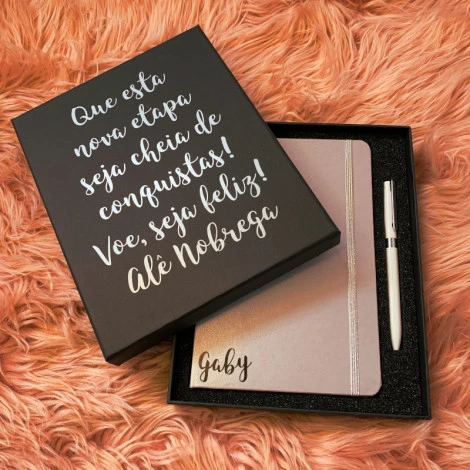 Que esta
nova etapa
seja cheia de
conquistas!
Voe, seja feliz!
Alê Nobrega
Gaby